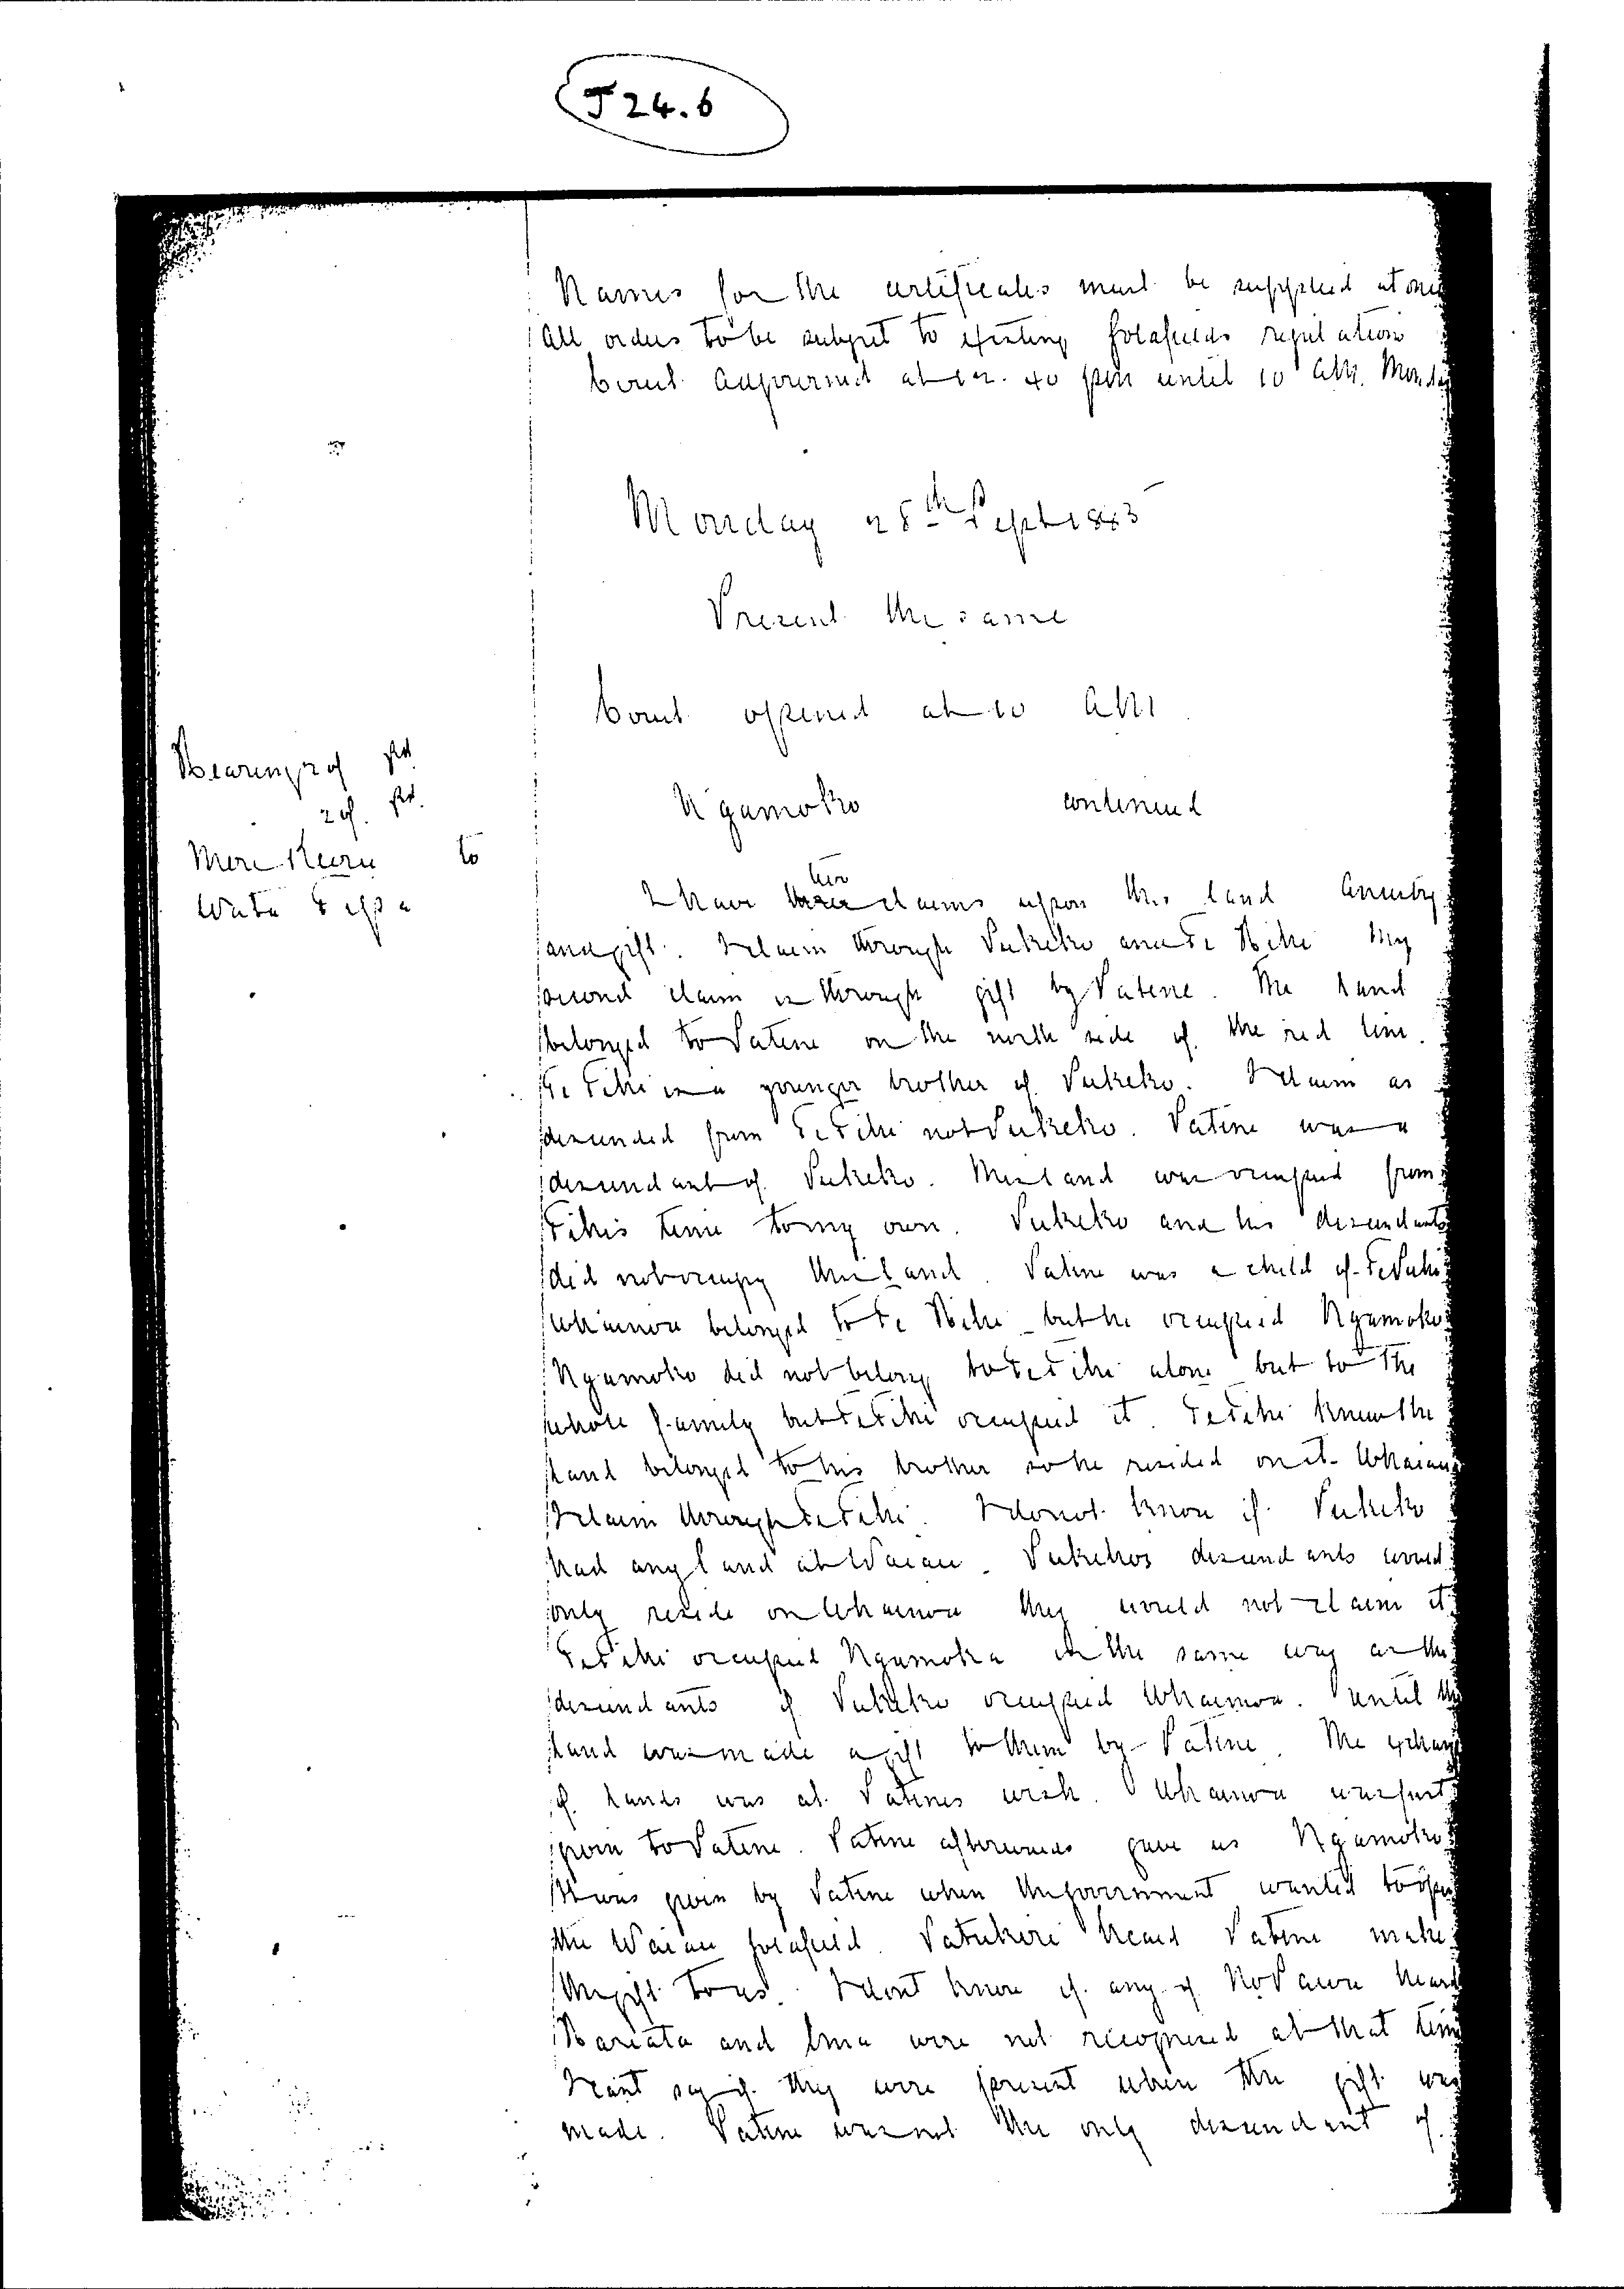 J 24.6
Names for the certificates must be supplied at once
All orders to be subject to existing Goldfields regulations
Court adjourned at 12.40 pm until 10 AM. Monday
Monday 28th Sept 1885
Present the same
Court opened at 10 AM
Hearing 20/ pd
20/. pd.
Ngamoko continued
Mere Kuru to
Wata Topa
I have two claims upon this land Ancestry
and gift. I claim through Pukeko and Te Tihi My
second claim is through gift by Patene. The land
belonged to Patene on the north side of the red line.
Te Tihi is a younger brother of Pukeko. I claim as
descended from Te Tihi not Pukeko. Patene was a
descendant of Pukeko. The land was occupied from
Tihis time to my own. Pukeko and his descendants
did not occupy the land. Patene was a child of
Whainoa belonged to Te Tihi but he occupied Ngamoko
Ngamoko did not belong to Te Tihi alone but to the
whole family but Te Tihi occupied it. Te Tihi knew the
land belonged to his brother so he resided on it.
I claim through Te Tihi. I do not know if Pukeko
had any land at Waiau. Pukekos descendants would
only reside on Whainoa they would not claim it
Te Tihi occupied Ngamoko in the same way as the
descendants of Pukeko occupied Whainoa. until the
land was made a gift to them by Patene. The exchange
of lands was at Patenes wish. Whainoa was first
given to Patene. Patene afterwards gave us Ngamoko
It was given by Patene when the Government wanted to open
the Waiau goldfield. Patukere heard Patene make
the gift to us. I dont know if any of Ngapaoa heard
Hariata and Ema were not recognised at that time
I cant say if they were present when the gift was
made. Patene was not the only descendant of